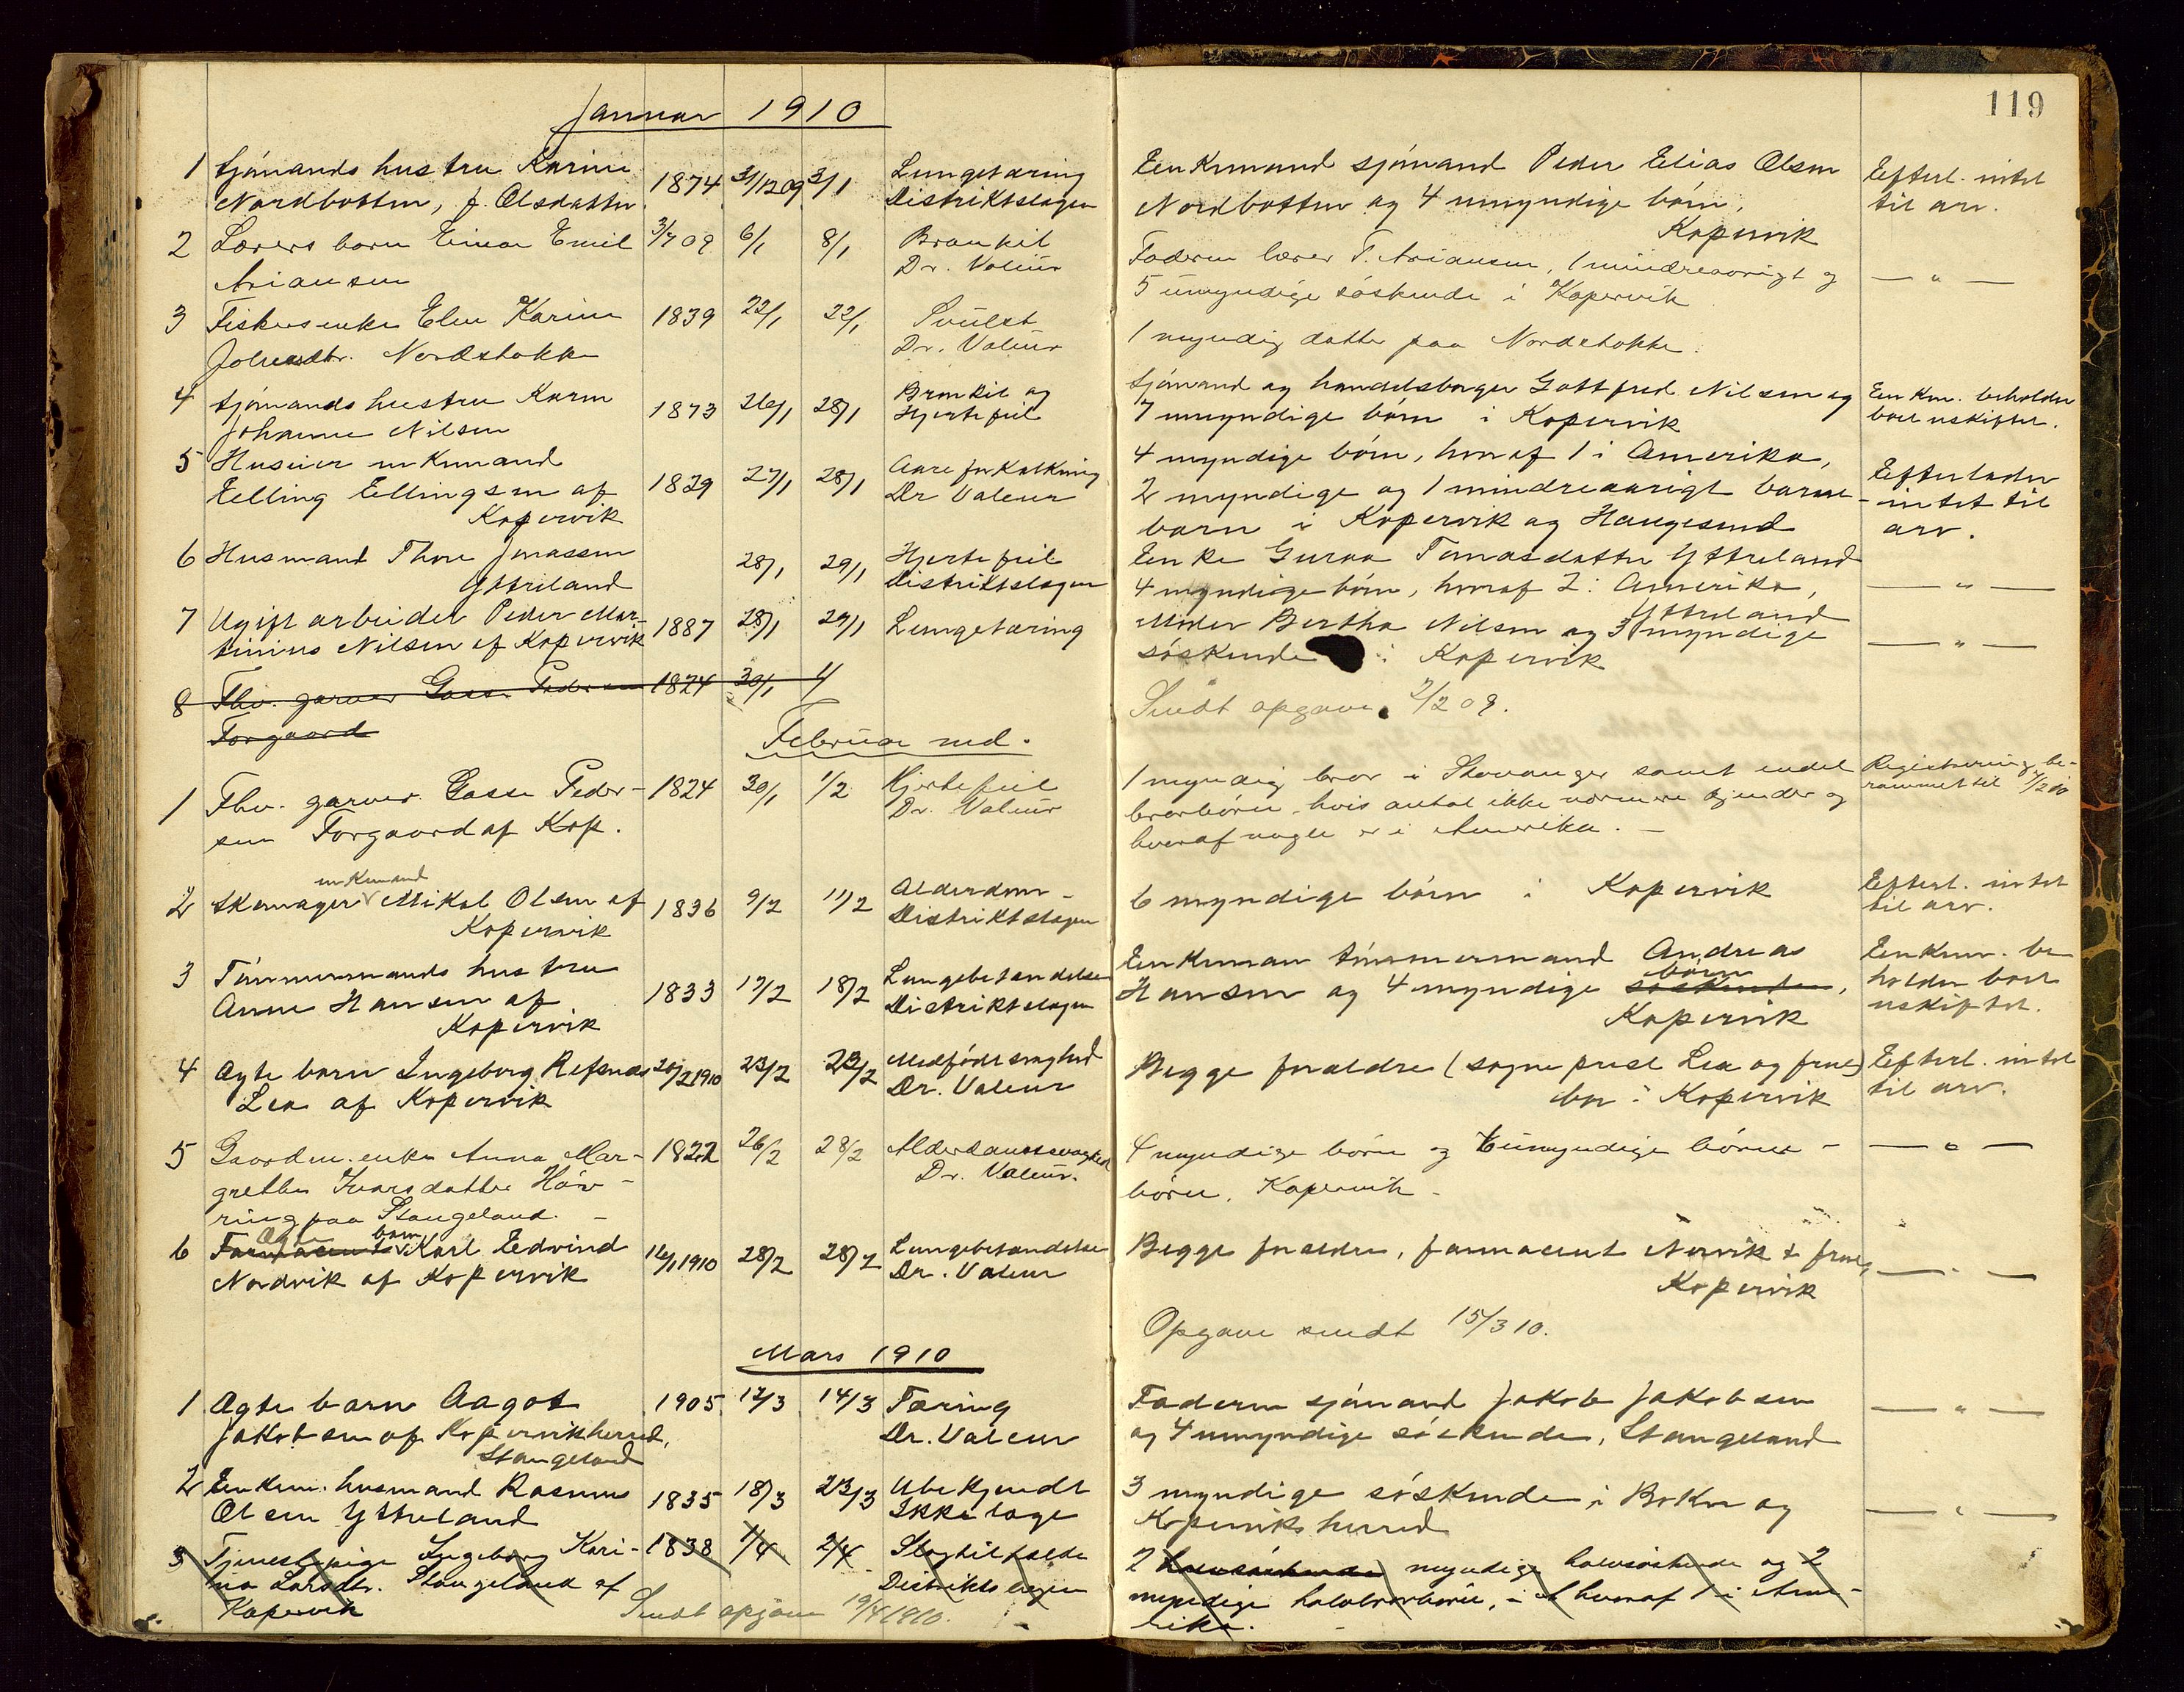 119
Januar 1910
1 Sjømands hustru Karine 1874 31/12 09 3/1 Lungetæring Enkemand sjømand Peder Elias Olsen Efterl. intet
Nordbotten, f. Olsdatter Distriktslægen Nordbotten og 4 umyndige børn, til arv.
Kopervik
2 Lærers barn Einar Emil 3/7 09 6/1 8/1 Bronkit Faderen lærer T. Ariansen, 1 mindreaarigt og — " —
Ariansen Dr. Valeur 5 umyndige søskende i Kopervik
3 Fiskerenke Elen Karine 1839 22/1 22/1 Svulst 1 myndig datter paa Nordstokke.
Nordstokke Dr. Valeur
4 Sjømands hustru Karen 1873 26/1 28/1 Bronkit og Sjømand og handelsborger Gottfred Nilsen og Enkm. beholder
Johanne Nilsen Hjertefeil 7 umyndige børn i Kopervik boet uskiftet.
5 Huseier enkemand 1829 27/1 28/1 Aareforkalkning 4 myndige børn, hvoraf 1 i Amerika, Efterlader
Elling Ellingsen af Dr Valeur 2 myndige og 1 mindreaarigt barne- intet til
Kopervik barn i Kopervik og Haugesund arv.
6 Husmand Thore Jonassen 28/1 29/1 Hjertefeil Enke Guroa Tomasdatter Ytreland — " —
Ytreland Distriktslægen 4 myndige børn, hvoraf 2 i Amerika,
Ytreland
7 Ugift arbeider Peder Mar- 1887 28/1 29/1 Lungetæring Moder Bertha Nilsen og 3 myndige — " —
tinius Nilsen af Kopervik søskende i Kopervik
8 Fhv. garver Gasse Pedersen 1824 30/1 Sendt opgave 2/2 09.
Torgaard
Februar md.
1 Fhv. garver Gasse Peder- 1824 30/1 1/2 Hjertefeil 1 myndig bror i Stavanger samt endel Registrering be-
sen Torgaard af Kop. Dr. Valeur brorbørn hvis antal ikke nærmere kjendes og rammet til
hvoraf nogle er i Amerika. —
2 Skomager enkemand Mikal Olsen af 1836 9/2 11/2 Alderdom 6 myndige børn i Kopervik Efterl. intet
Kopervik Distriktslægen til arv.
3 Tømmermands hustru 1833 17/2 18/2 Lungebetændelse Enkeman tømmermand Andreas Enkem. be
Anne Hansen af Distriktslægen Hansen og 4 myndige søskende børn, holder boet
Kopervik Kopervik uskiftet.
4 Ægte barn Ingeborg Refsnes 20/2 1910 23/2 23/2 Medfødt svaghed Begge forældre (sogneprest Lea og frue) Efterl. intet
Lea af Kopervik Dr. Valeur bor i Kopervik til arv.
5 Gaardm. enke Anna Mar- 1822 26/2 28/2 Alderdomssvaghed 4 myndige børn og umyndige børne- — " —
grethe Ivarsdatter Dr. Valeur. børn. Kopervik
paa Stangeland. —
6 Farmaceut Ægte barn Karl Edvind 16/1 1910 28/2 28/2 Lungebetændelse Begge forældre, farmaceut Norvik & frue, — " —
Nordvik af Kopervik Dr. Valeur Kopervik
Opgave sendt 15/3 10.
Mars 1910
1 Ægte barn Aagot 1905 12/3 14/3 Tæring Faderen sjømand Jakob Jakobsen — " —
Jakobsen af Kopervik herred, Dr. Valeur og 4 umyndige søskende, Stangeland
Stangeland
2 Enkem. husmand Rasmus 1835 18/3 23/3 Ubekjendt 3 myndige søskende i Bokn og — " —
Olsen Ytreland Ikke læge Koperviks herred
3 Tjenestepige Ingeborg Kari- 1838 1/4 2/4 Slagtilfælde 2 halvsøskende myndige halvsøskende og 2
na Larsdtr. Stangeland af Distriktslægen myndige halvbrorbørn, hvoraf 1 i Ame-
Kopervik Sendt opgave 19/4 1910. rika.